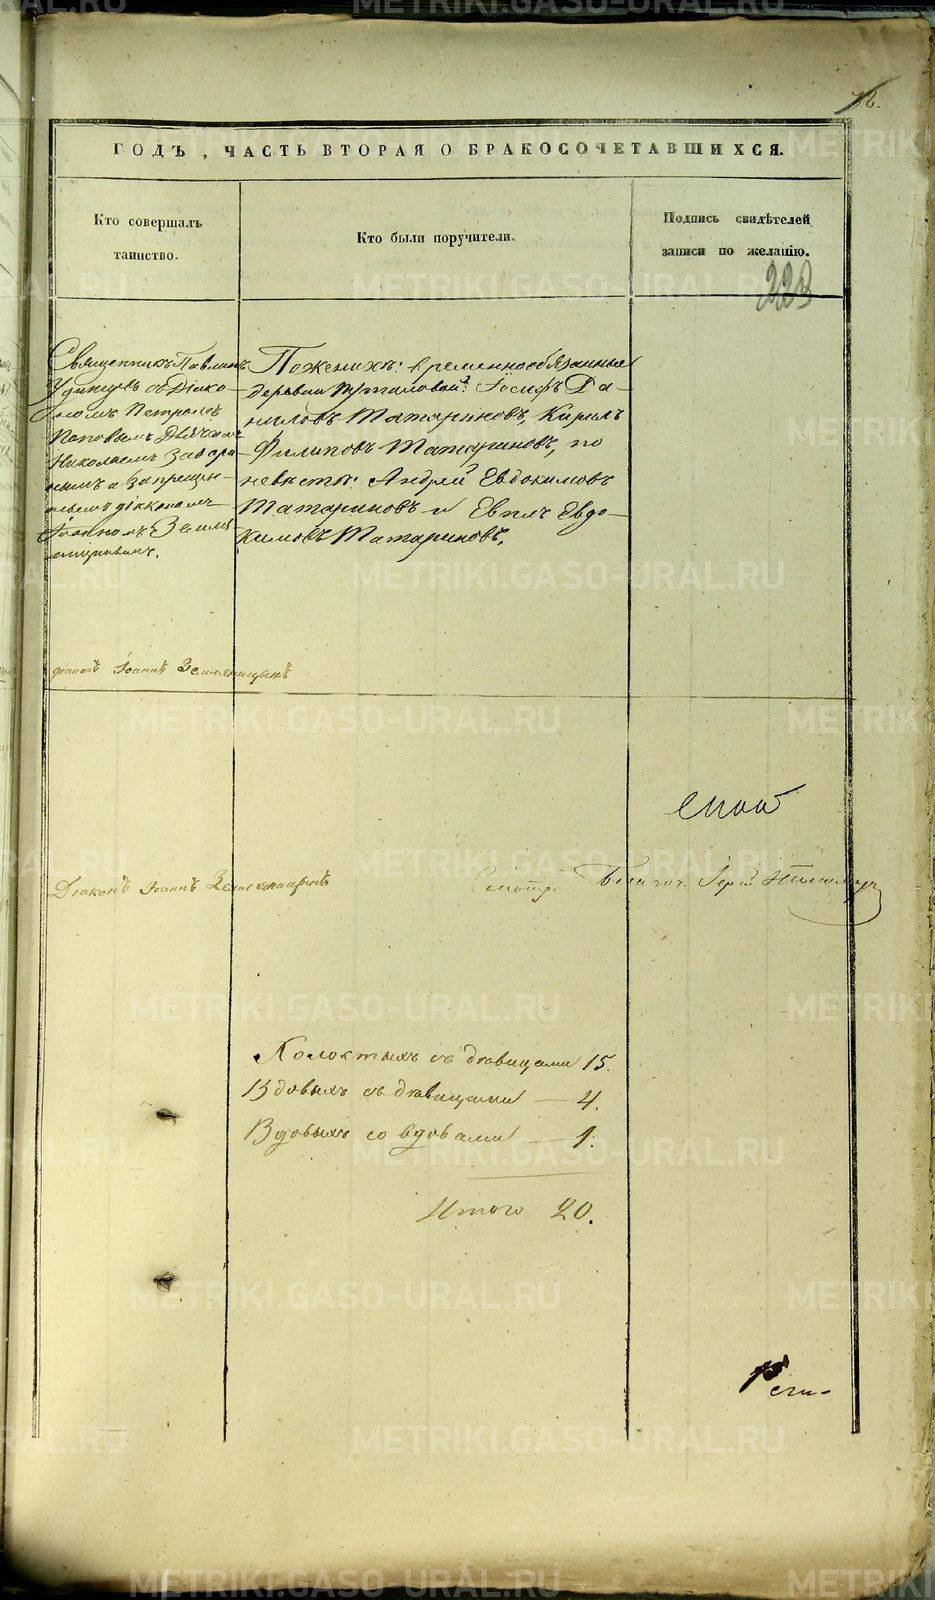 12.
ГОДЪ, ЧАСТЬ ВТОРАЯ О БРАКОСОЧЕТАВШИХСЯ.
Кто совершалъ
таинство.
Кто были поручители.
Подпись свидѣтелей
записи по желанію.
228
Священникъ Павлинъ
Удинцовъ съ Діако-
номъ Петромъ
Поповымъ Дьячкомъ
Николаемъ
нымъ и запрещен-
нымъ діакономъ
Іоанномъ Земля-
ницынымъ.
По женихѣ: временнообязанные
деревни Путиловой: Іосифъ Да-
ниловъ Татариновъ, Кирилъ
Филиповъ Татариновъ, по
невѣстѣ: Андрей Евдокимовъ
Татариновъ и Евплъ Евдо-
кимовъ Татариновъ.
діаконъ Іоаннъ Земляницынъ
Діаконъ Іоаннъ Земляницынъ
Смотр. Іерей
Холостыхъ съ дѣвицами 15.
Вдовыхъ съ дѣвицами — 4.
Вдовыхъ со вдовами — 1.
Итого 20.
METRIKI.GASO-URAL.RU